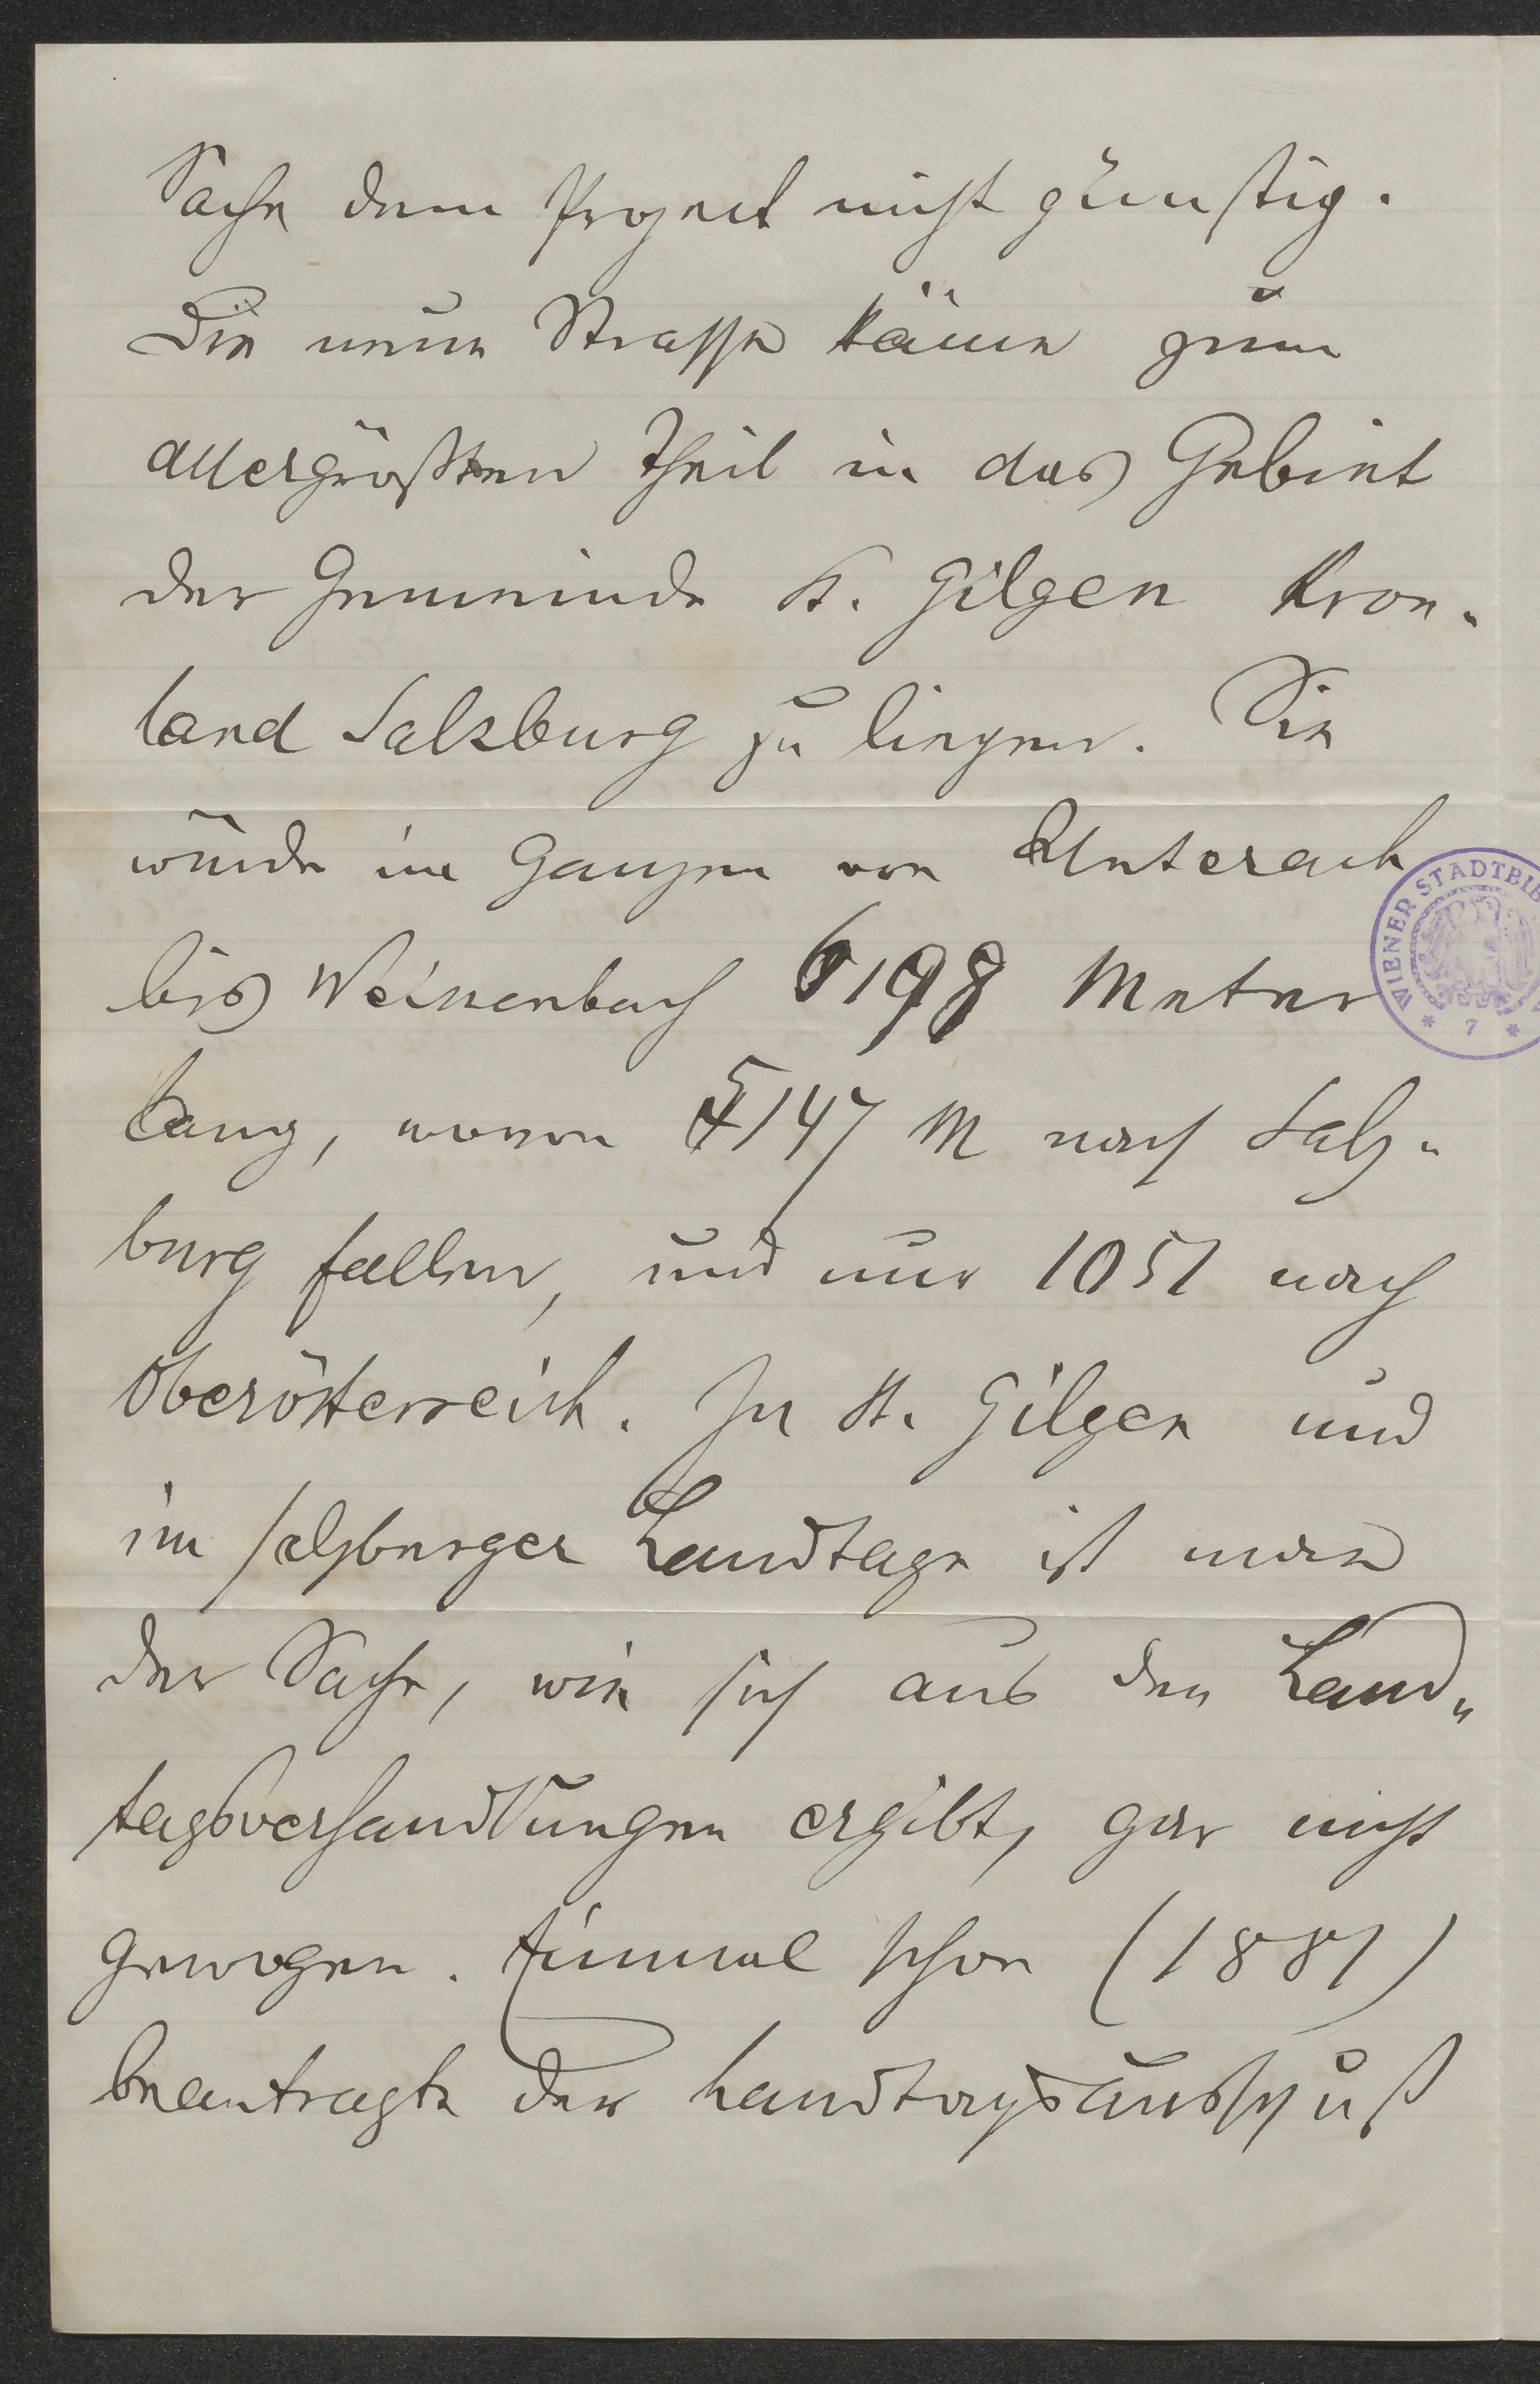 Sache dem Project nicht günstig.
Die neue Strasse käme zum
allergrößten Theil in das Gebiet
der Gemeinde St. Gilgen Kron-
land Salzburg zu liegen. Sie
würde im Ganzen von Unterach
bis Weissenbach 6198 Meter
lang, wovon 5147 M nach Salz-
burg fallen, und nur 1051 nach
Oberösterreich. In St. Gilgen und
im salzburger Landtage ist man
der Sache, wie sich aus den Land-
tagsverhandlungen ergibt, gar nicht
gewogen. Einmal schon (1881)
beantragte der Landtagsausschuß
WIENER STADTBIB
* 7 *